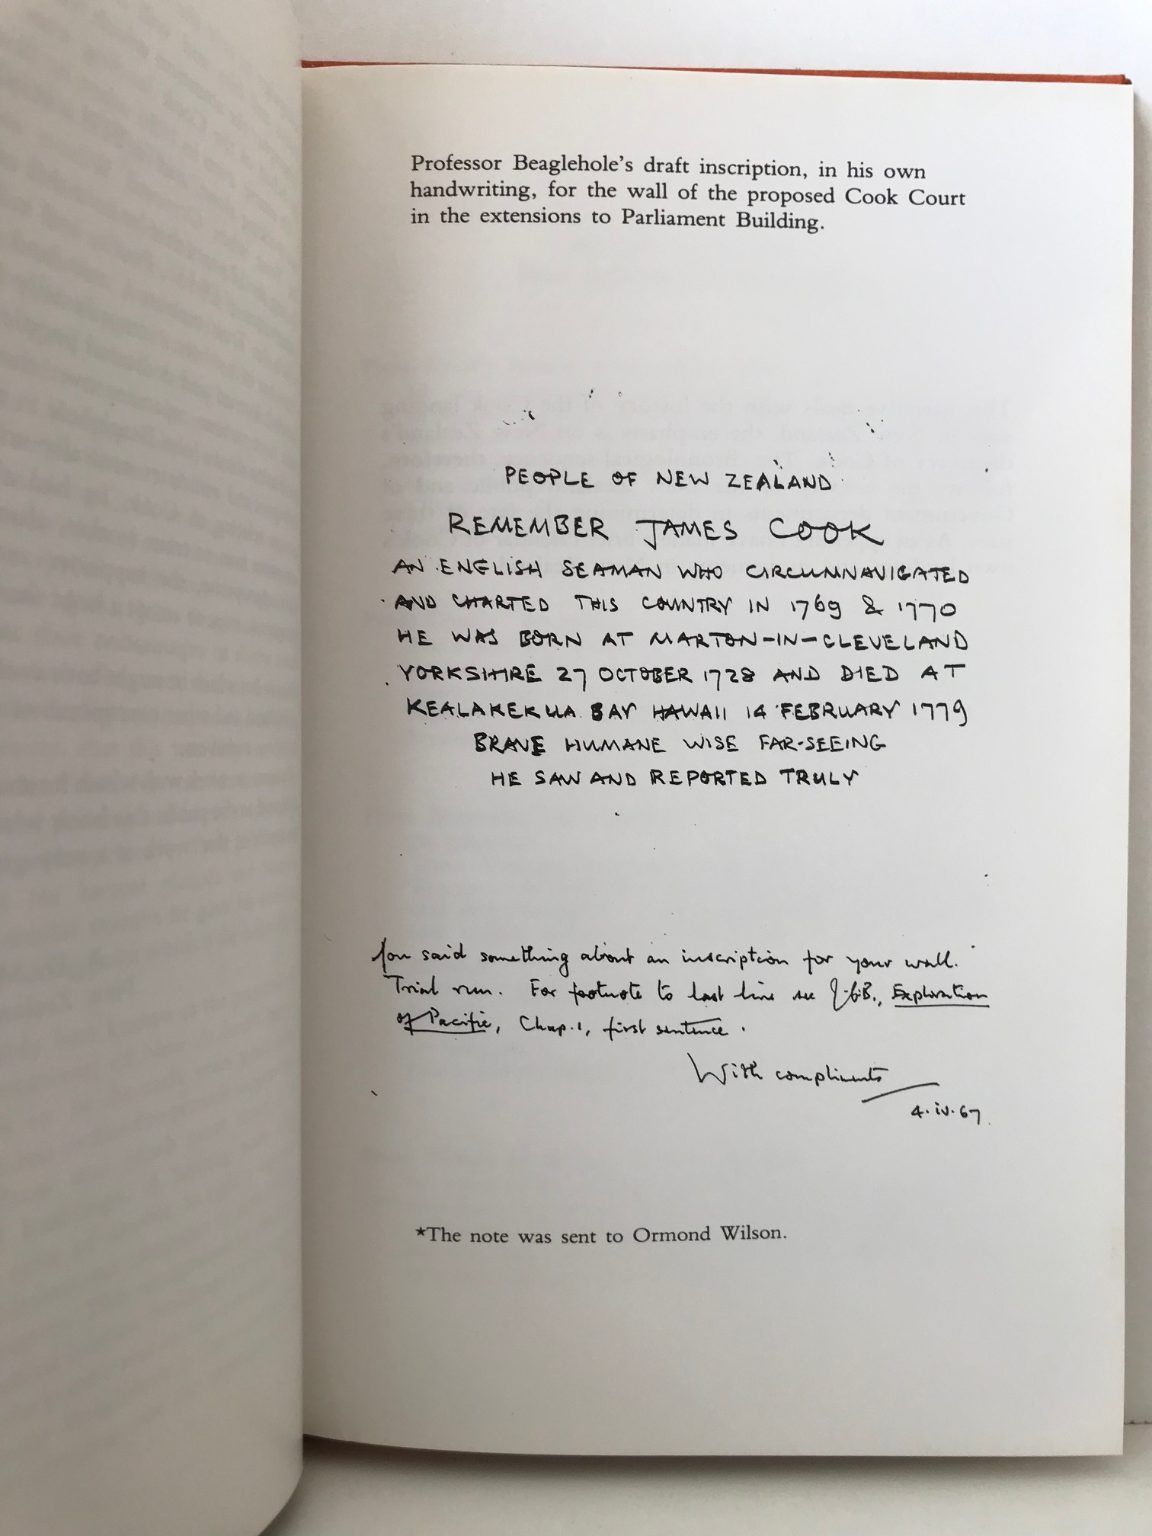 Professor Beaglehole's draft inscription, in his own
handwriting, for the wall of the proposed Cook Court
in the extensions to Parliament Building.
PEOPLE OF NEW ZEALAND
REMEMBER JAMES COOK
AN ENGLISH SEAMAN WHO CIRCUMNAVIGATED
AND CHARTED THIS COUNTRY IN 1769 & 1770
HE WAS BORN AT MARTON-IN-CLEVELAND
YORKSHIRE 27 OCTOBER 1728 AND DIED AT
KEALAKEKUA BAY HAWAII 14 FEBRUARY 1779
BRAVE HUMANE WISE FAR-SEEING
HE SAW AND REPORTED TRULY
You said something about an inscription for your wall.
Trial run. For footnote to last line see J.C.B., Exploration
of Pacific, Chap. 1, first sentence.
With compliments
4.iv.67
*The note was sent to Ormond Wilson.